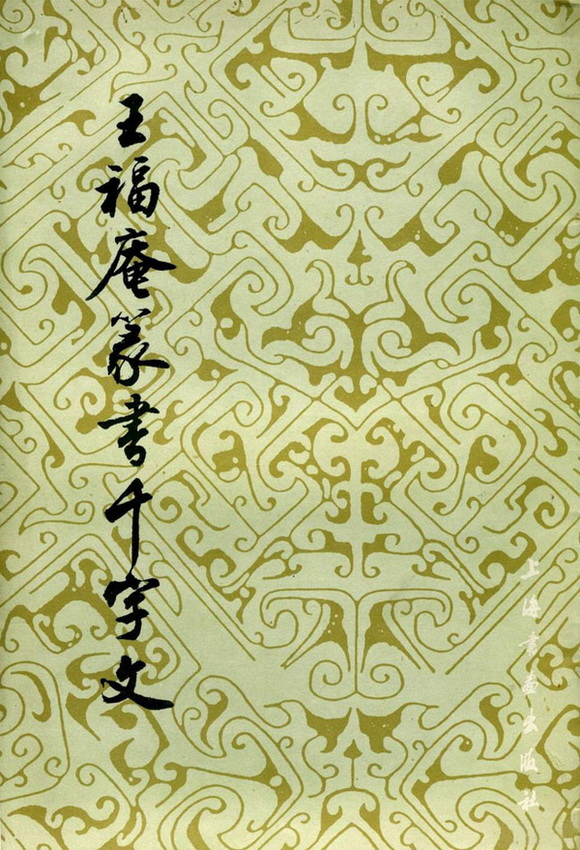 王福庵篆书千字文
上海书画出版社